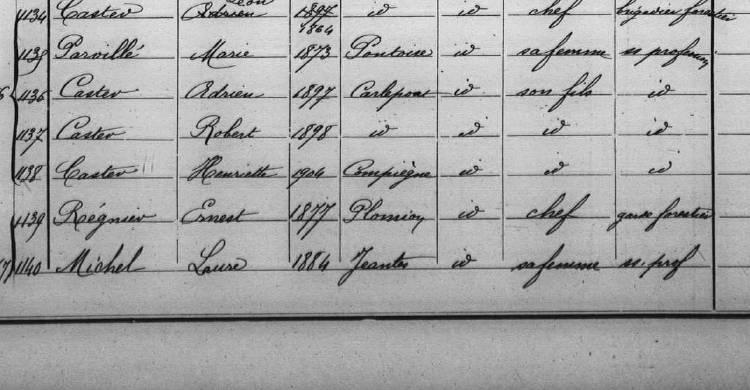 Léon
1134 Caster Adrien 1897 id id chef brigadier forestier
1864
1135 Paroillé Marie 1873 Pontoise id sa femme ss profession
6 1136 Caster Adrien 1897 Carlepont id son fils id
1137 Caster Robert 1898 id id id id
1138 Caster Henriette 1904 Compiègne id id id
1139 Régnier Ernest 1877 Plomion id chef garde forestier
7 1140 Michel Laure 1884 Jeantes id sa femme ss. prof